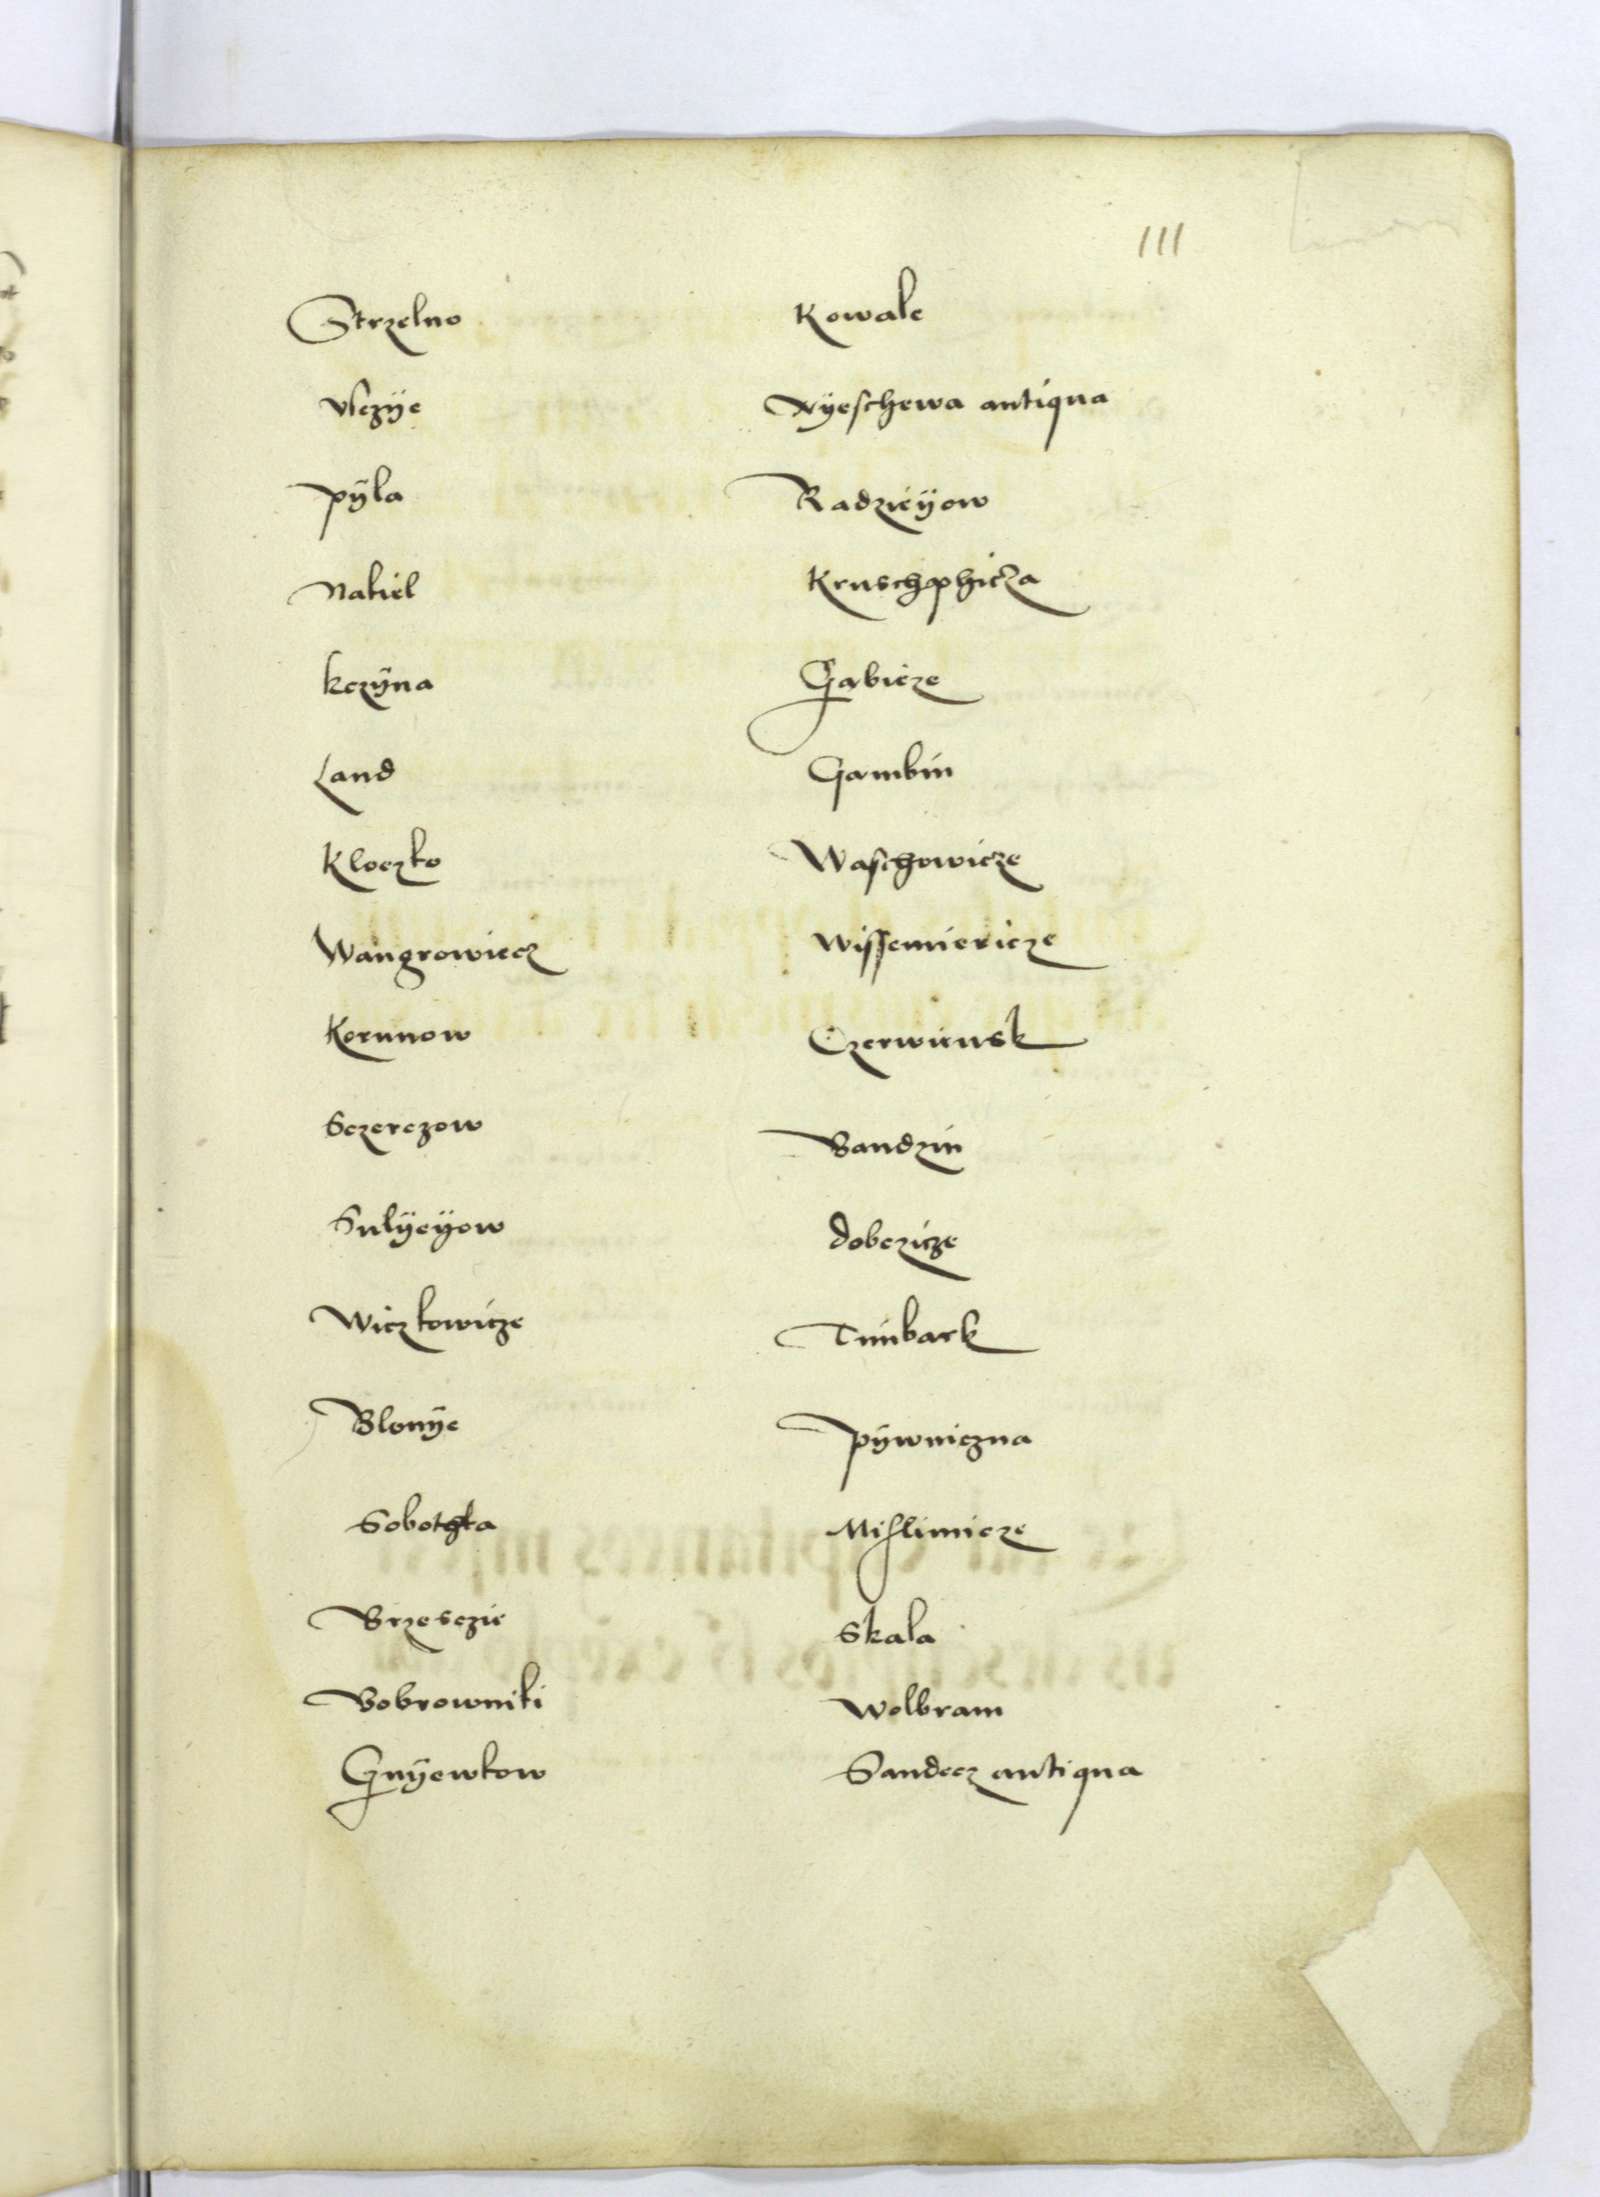 111
Strzelno
Vsczÿe
Pÿla
Nakiel
kczÿna
Land
Kloczko
Wangrowiecz
Kornnow
Sczerczow
Sulÿeÿow
Wiczkowicze
Blonÿe
Sobotka
Brzesczie
Bobrowniki
Gnÿewkow
Kowale
Nÿeschewa antiqua
Radzieÿow
Kruschphicza
Gabicze
Gambin
Waschowicze
Wissemiericze
Czerwiensk
Bandzin
dobczicze
Timbark
Pÿwniczna
Mislimicze
Skala
Wolbram
Sandecz antiqua